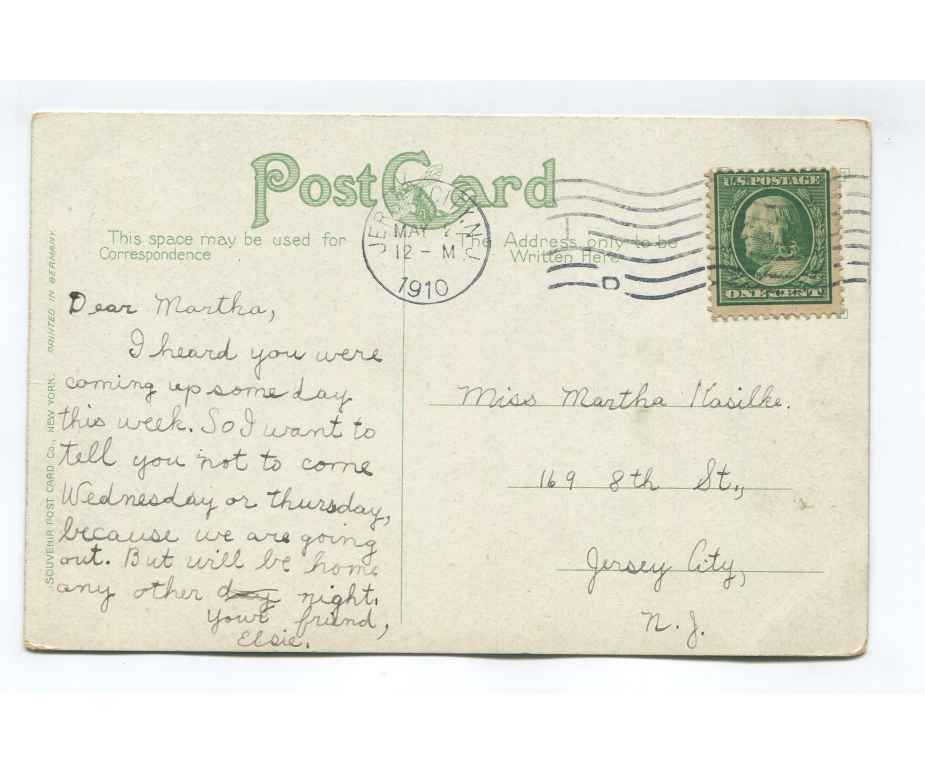 Post Card
This space may be used for
Correspondence
The Address only to be
Written Here
JERSEY CITY, N.J.
MAY 2
12 - M
1910
U.S. POSTAGE
ONE CENT
Dear Martha,
I heard you were
coming up some day
this week. So I want to
tell you not to come
Wednesday or thursday,
because we are going
out. But will be home
any other day night.
Your friend,
Elsie.
Miss Martha Kasilke.
169 8th St.,
Jersey City,
N. J.
SOUVENIR POST CARD CO., NEW YORK. PRINTED IN GERMANY